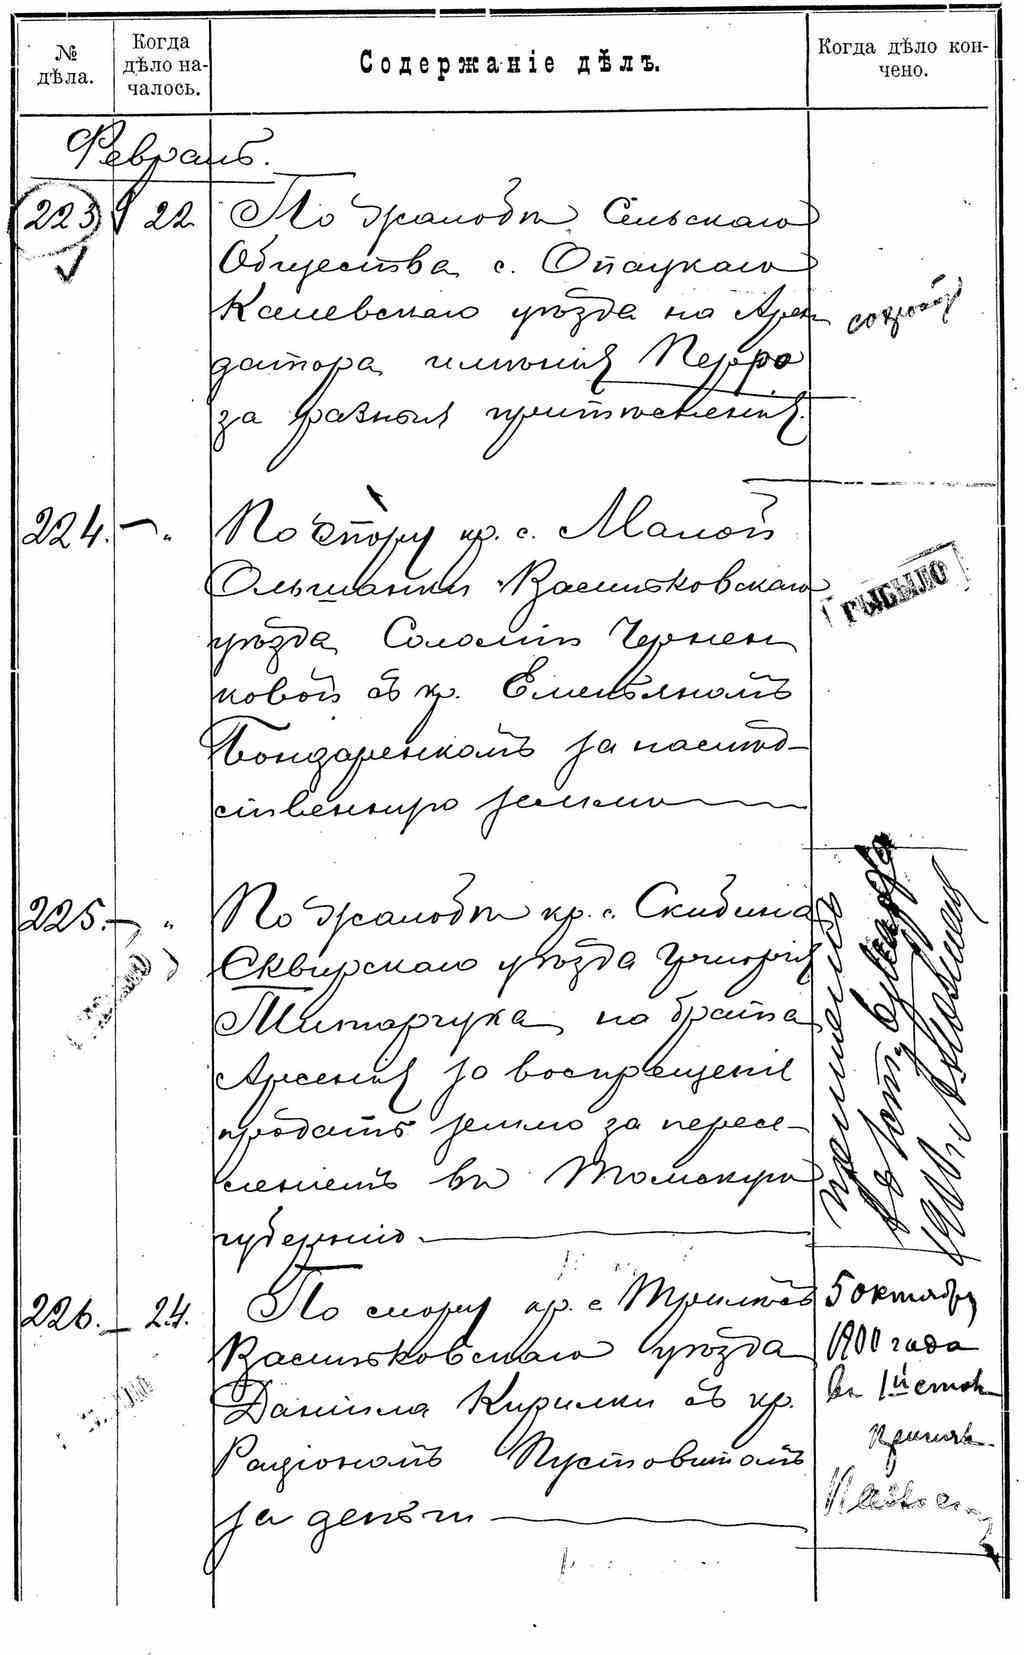 № дѣла.
Когда дѣло началось.
Содержаніе дѣлъ.
Когда дѣло кончено.
Февраль.
223 22 По жалобѣ Сельскаго
Общества с.
Каневскаго уѣзда на Арен
датора имѣнія Перро
за разныя притѣсненія.
224. — „ По спору кр. с. Малой
Ольшанки Васильковскаго
уѣзда Соломіи Чернен
ковой съ кр. Емельяномъ
Бондаренкомъ за наслѣд-
ственную землю
ВЫБЫЛО
225. — „ По жалобѣ кр. с. Скибина
Сквирскаго уѣзда Григорія
на брата
Арсенія за воспрещеніе
продать землю за пересе-
леніемъ въ Томскую
губернію.
226. — 24. По спору кр. с. Трилѣсъ
Васильковскаго уѣзда
Даніила Кирилки съ кр.
Радіономъ Пустовитомъ
за деньги
5 октября
1900 года
въ 1й